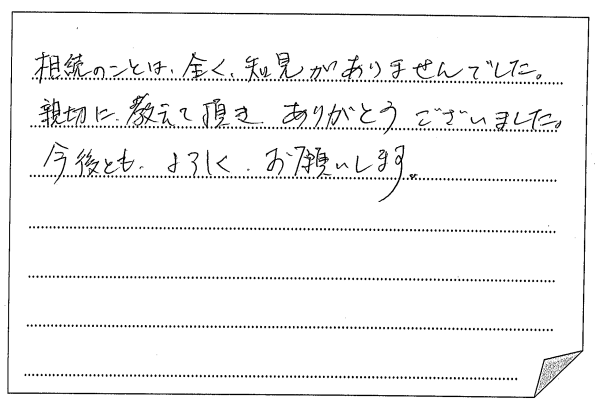 相続のことは、全く、知見がありませんでした。
親切に、教えて頂き ありがとう ございました。
今後とも、よろしく、お願いします。